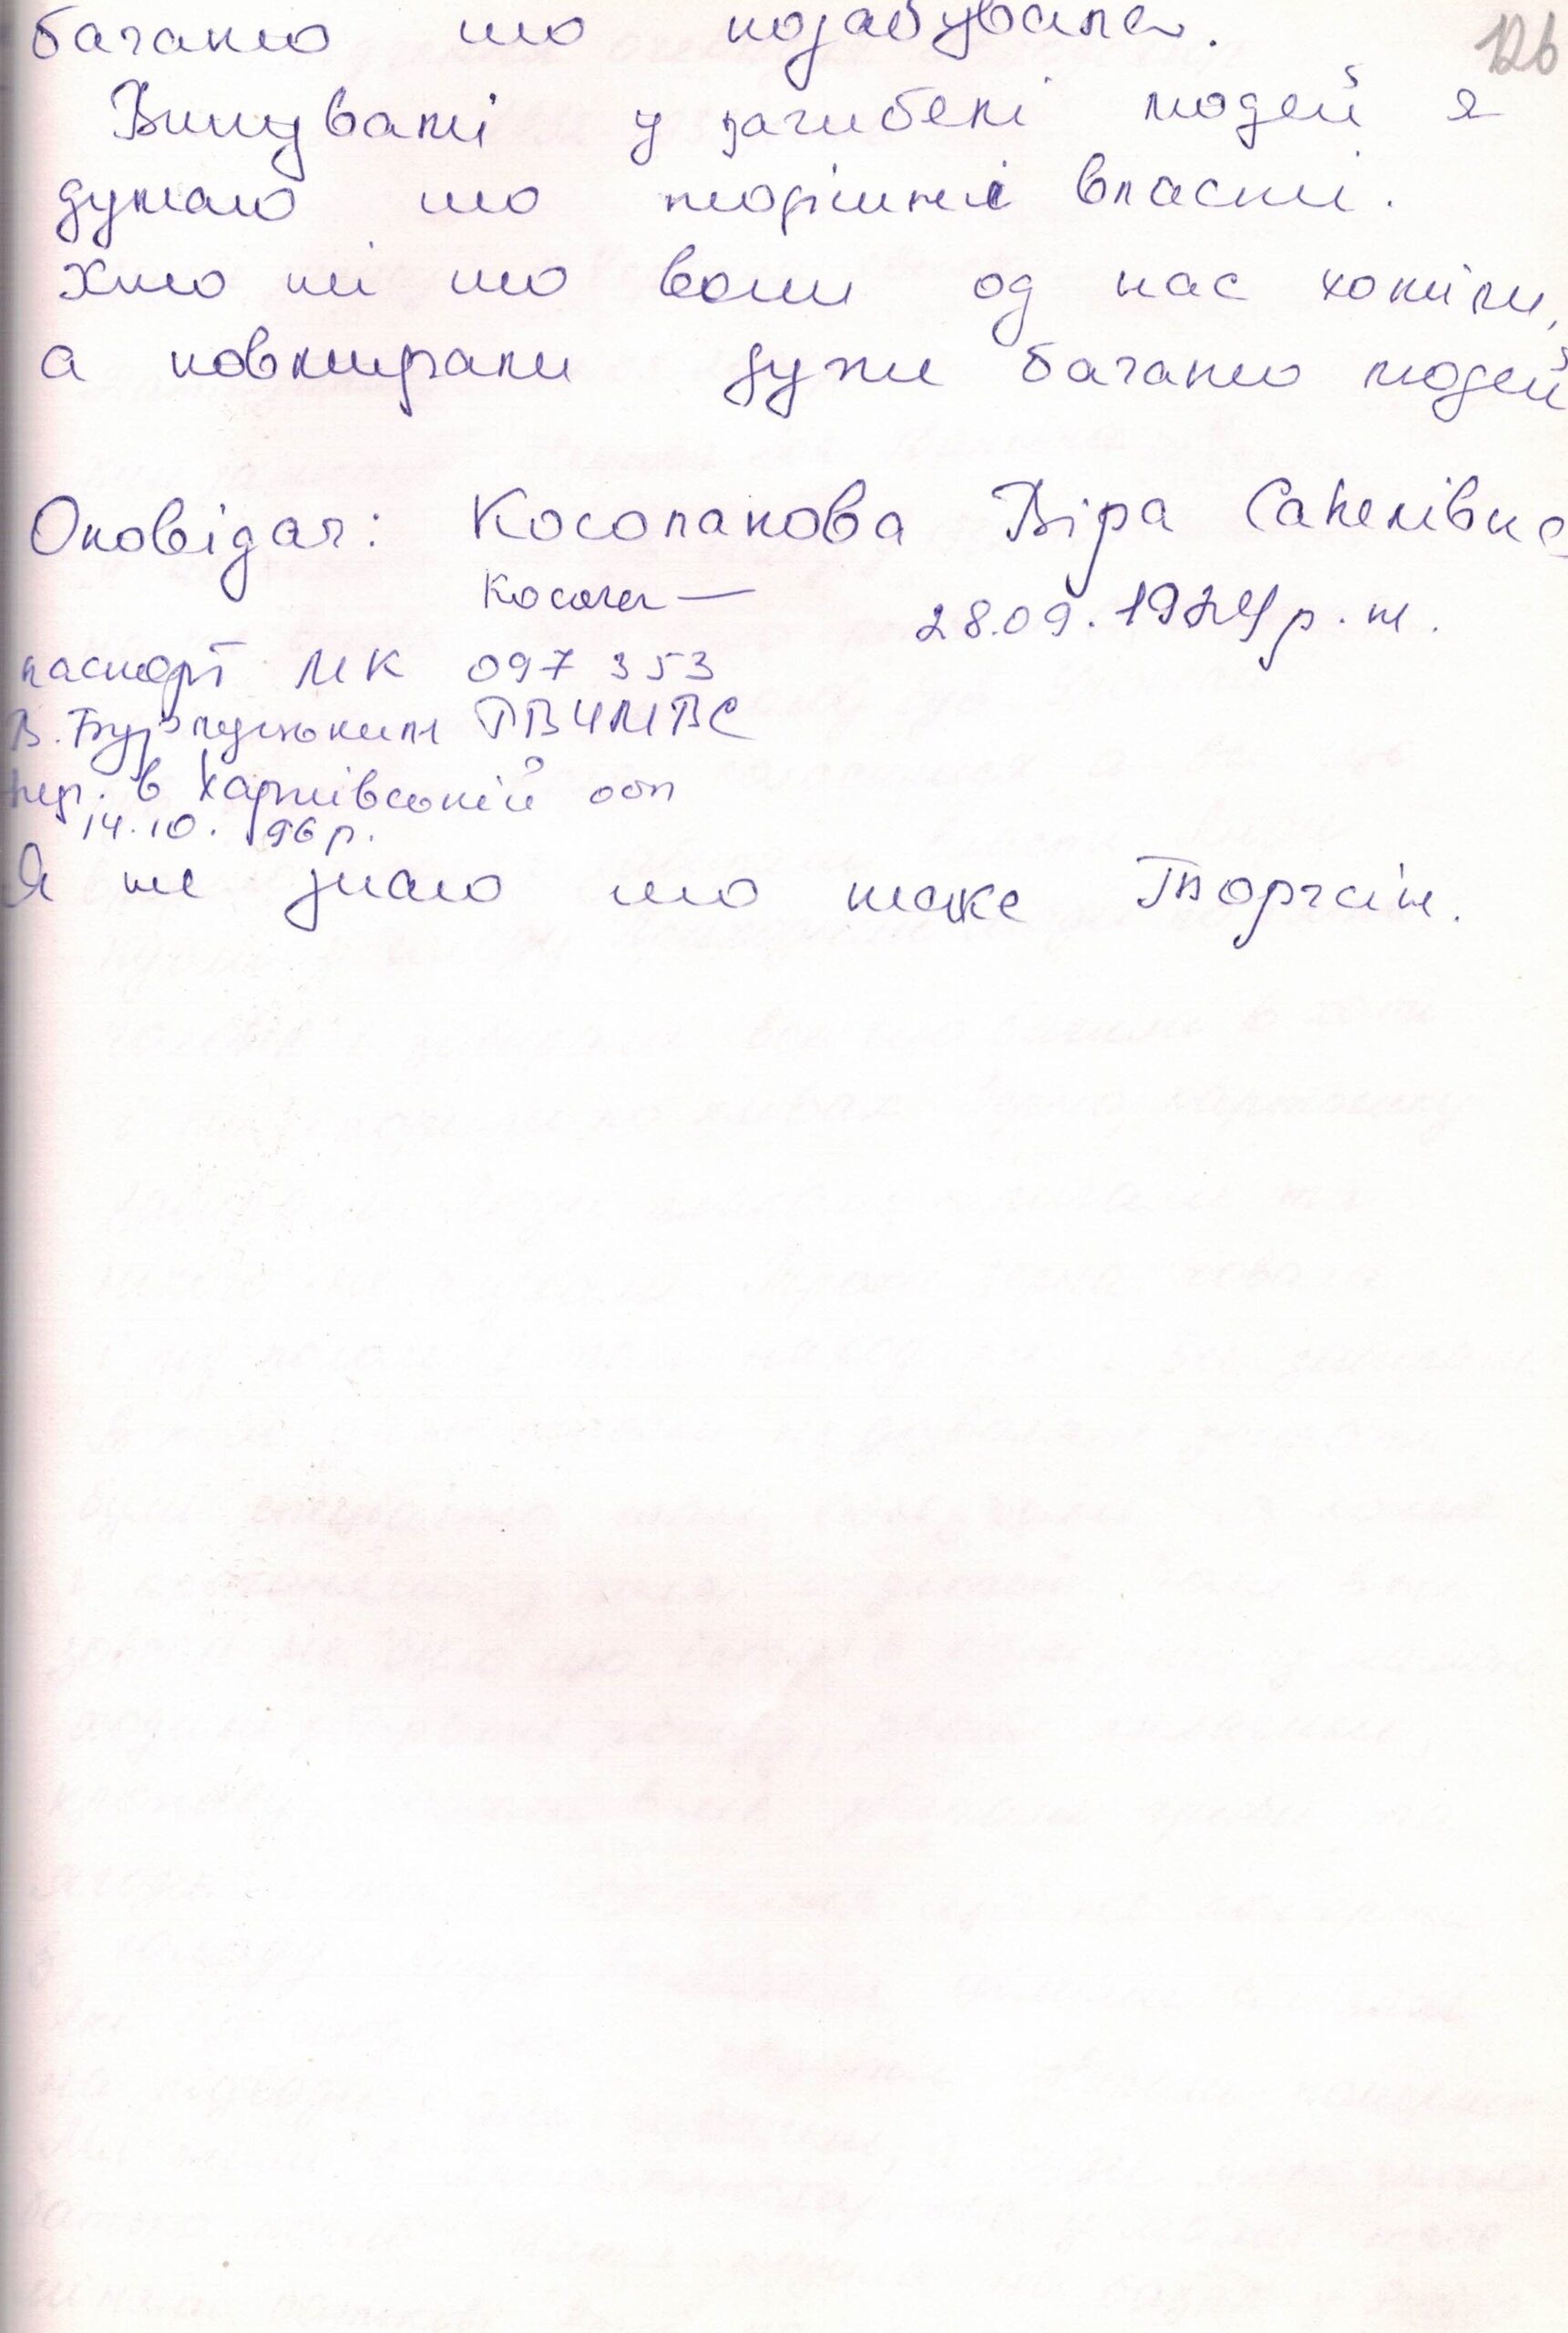 багато шо позабувала.
126
Винуваті у загибелі людей я
думаю шо тодішні власті.
Хто ні шо вони од нас хотіли,
а повмирали дужи багато людей
Оповідач: Косолапова Віра Савелівна
28.09.1924 р. н.
паспорт МК 097 353
В. Бурлуцьким РВ УМВС
Укр. в Харківській обл
14.10. 96 р.
Я не знаю шо таке Торгсін.